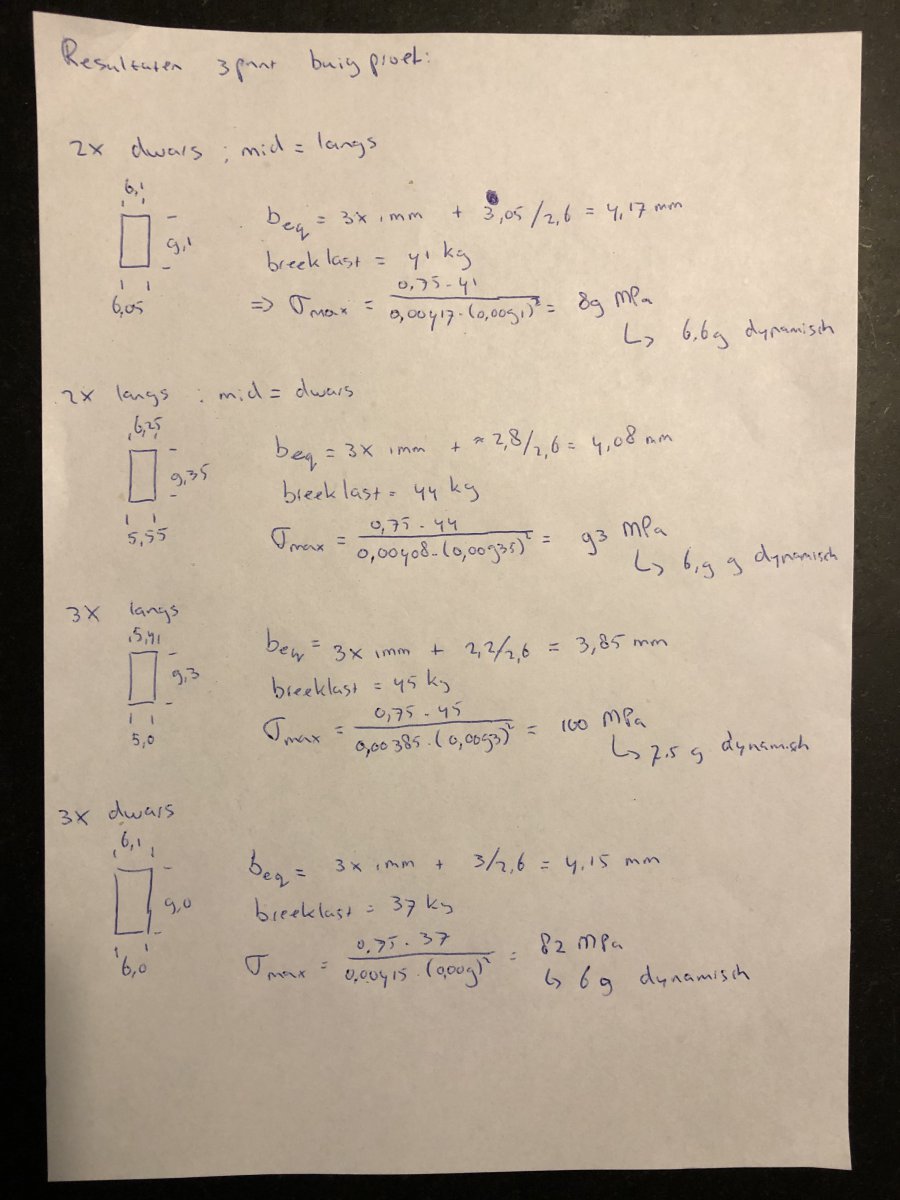 Resultaten 3punt buigproef:
2x dwars ; mid = langs
6,1
9,1
6,05
beq = 3x 1mm + 3,05/2,6 = 4,17 mm
breeklast = 41 kg
=> σmax = 0,75 · 41 / 0,00417 · (0,0091)² = 89 MPa
↳ 6,6g dynamisch
2x langs ; mid = dwars
6,25
9,35
5,55
beq = 3x 1mm + ≈2,8/2,6 = 4,08 mm
breeklast = 44 kg
σmax = 0,75 · 44 / 0,00408 · (0,00935)² = 93 MPa
↳ 6,9 g dynamisch
3x langs
5,41
9,3
5,0
beq = 3x 1mm + 2,2/2,6 = 3,85 mm
breeklast = 45 kg
σmax = 0,75 · 45 / 0,00385 · (0,0093)² = 100 MPa
↳ 7,5 g dynamisch
3x dwars
6,1
9,0
6,0
beq = 3x 1mm + 3/2,6 = 4,15 mm
breeklast = 37 kg
σmax = 0,75 · 37 / 0,00415 · (0,009)² = 82 MPa
↳ 6g dynamisch